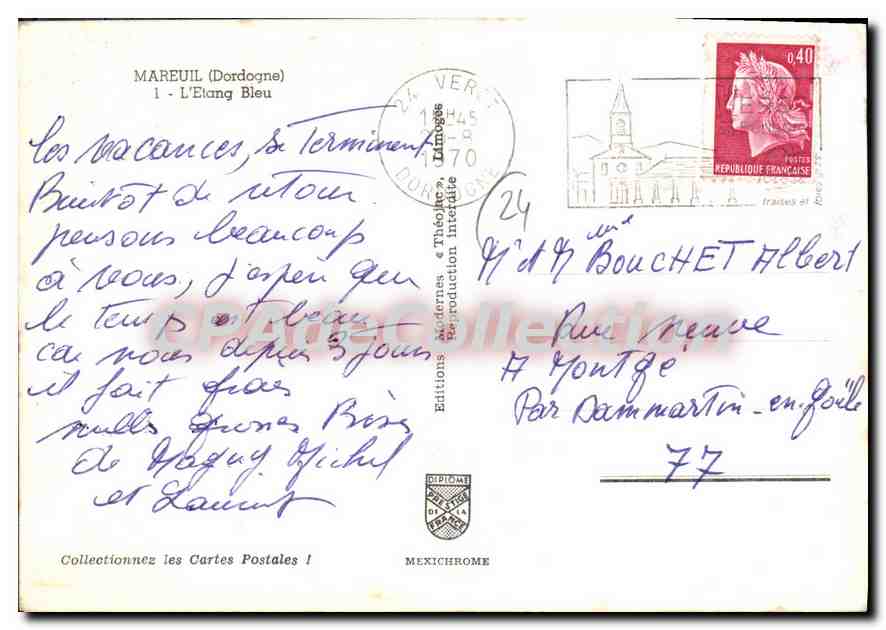 MAREUIL (Dordogne)
1 - L'Etang Bleu
les vacances, se terminent
Bientôt de retour
pensons beaucoup
à vous, j'espère que
le temps est beau
car nous depuis 3 jours
il fait frais
mille grosses Bises
de Maguy Michel
et Laurent
Collectionnez les Cartes Postales !
Editions Modernes « Théojac », Limoges
Reproduction interdite
DIPLOME
PRESTIGE
DE LA
FRANCE
MEXICHROME
24 VERT
1970
DORDOGNE
0,40
POSTES
REPUBLIQUE FRANÇAISE
fraises et
24
Mr et Mme BOUCHET Albert
Rue neuve
A Montgé
Par Dammartin-en-Goële
77
CPAdeCollection